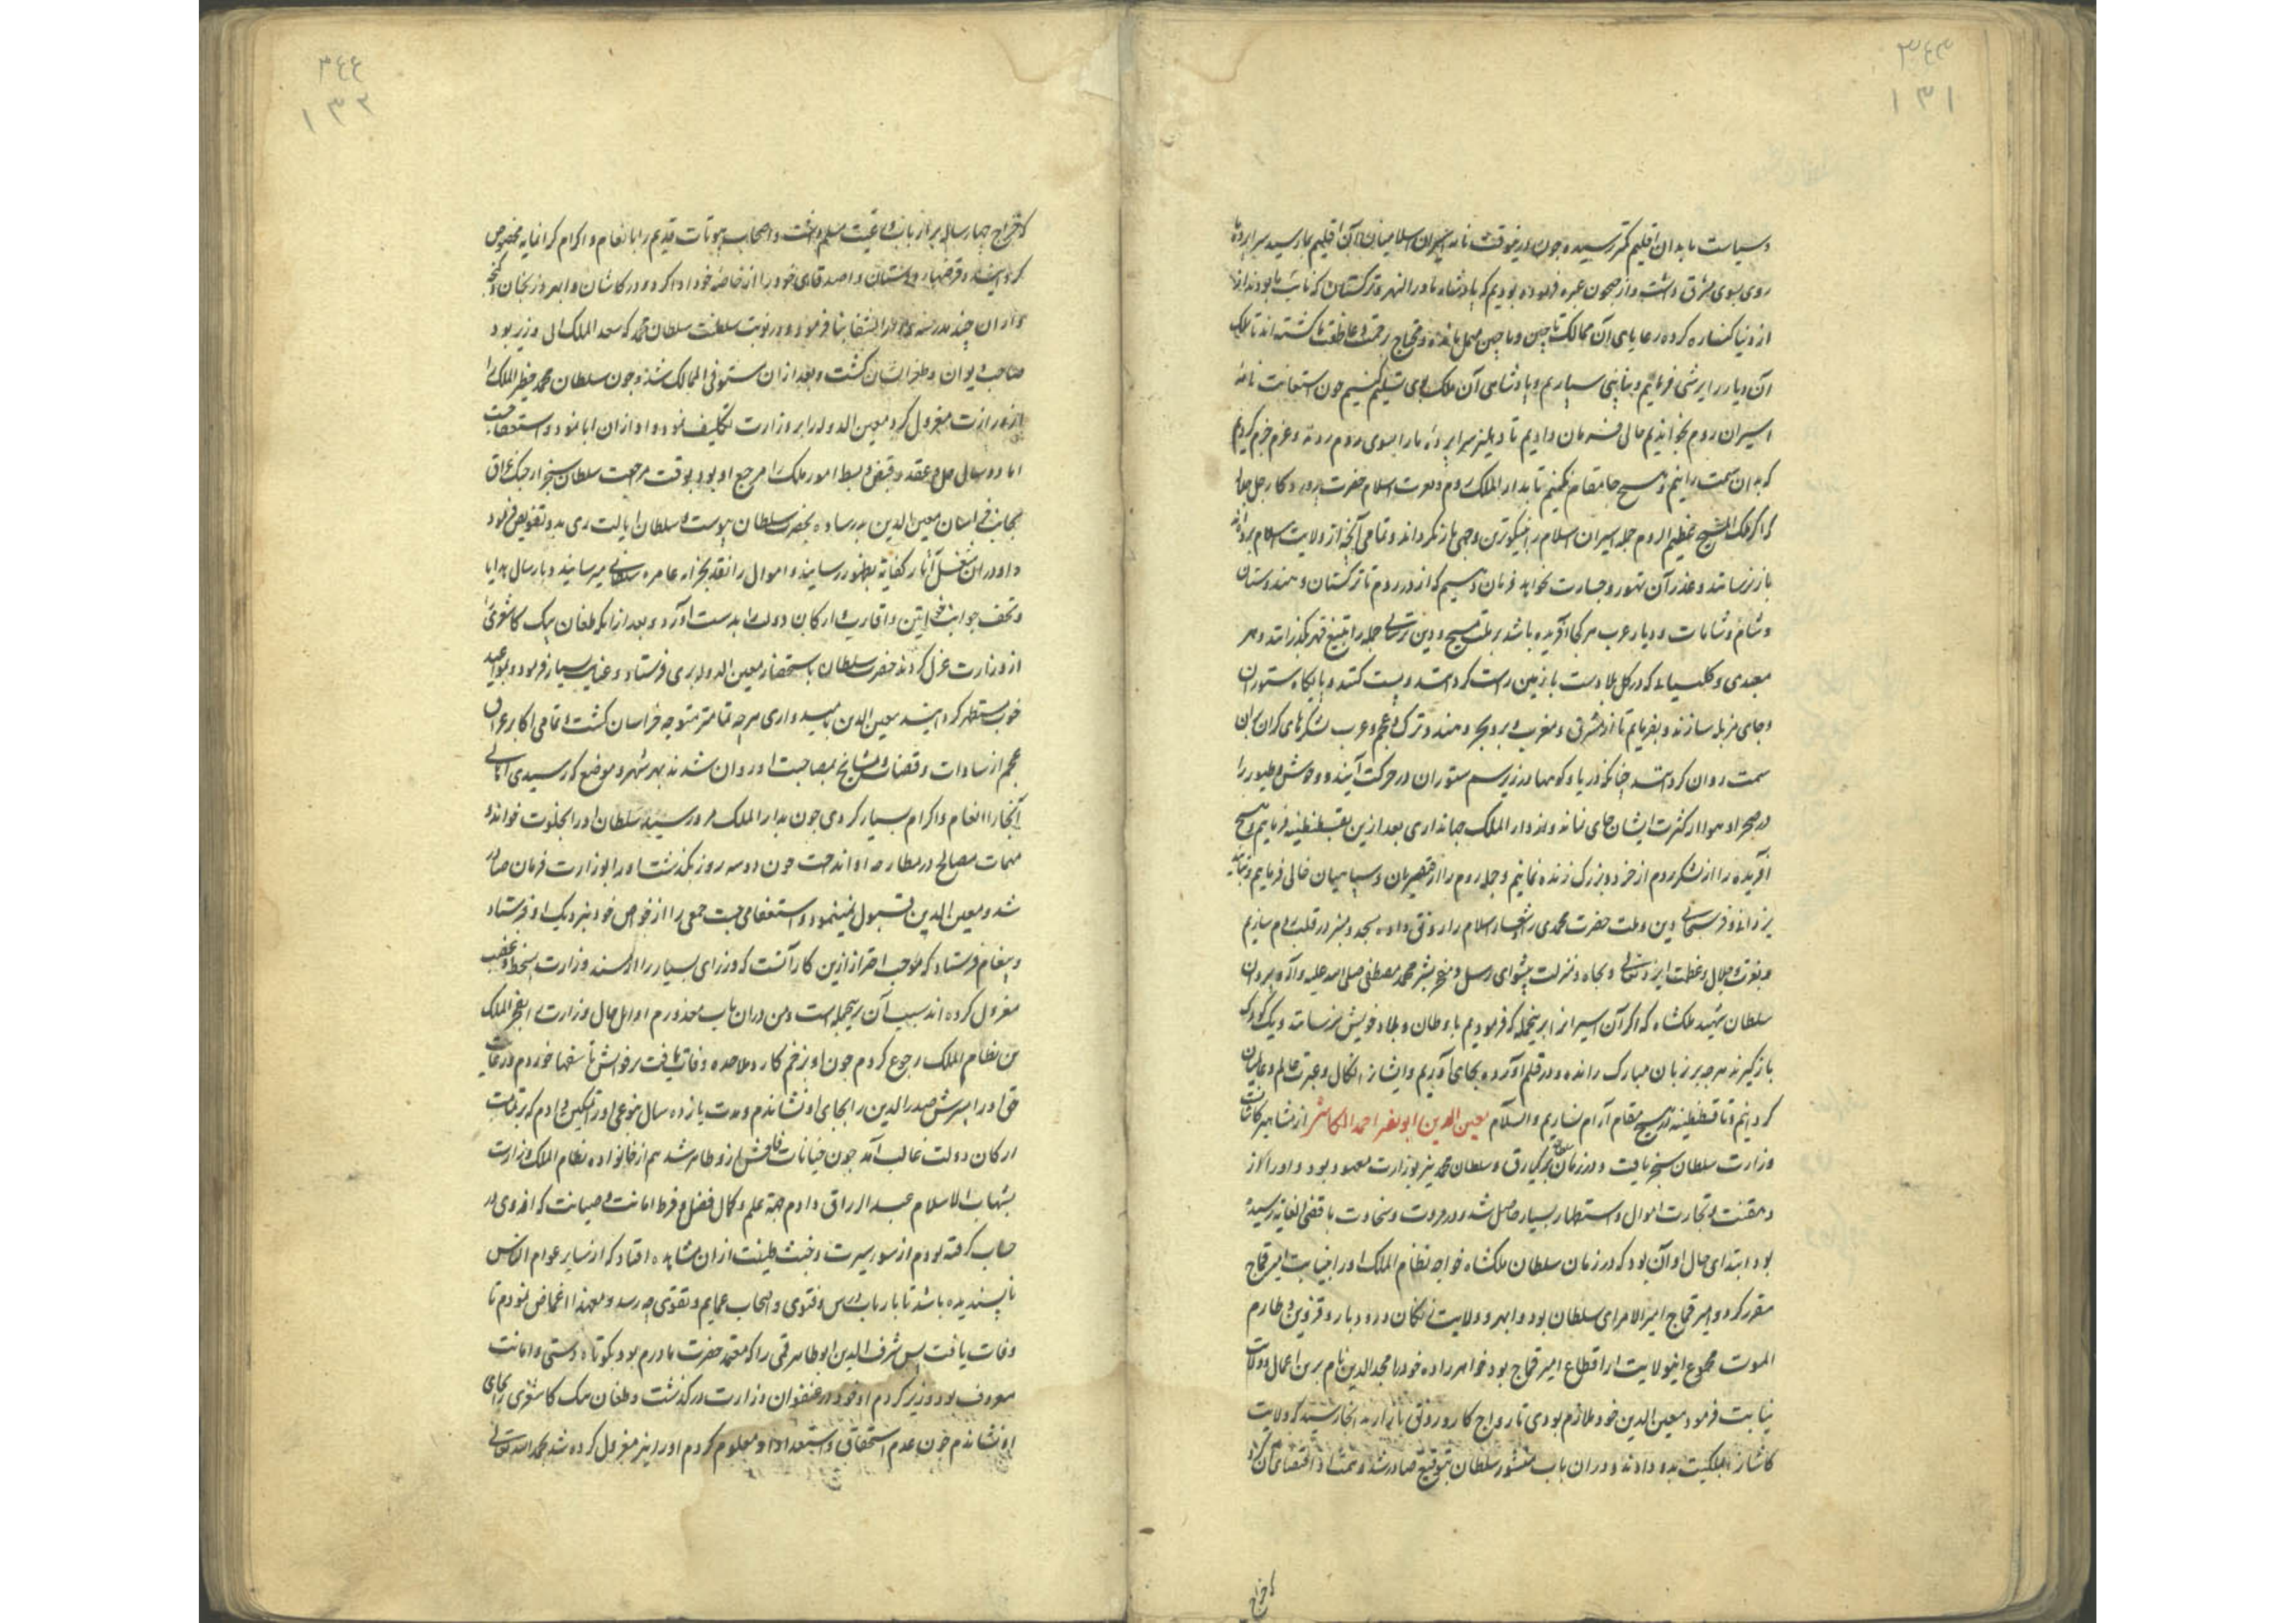 وسیاست ما بدان اقلیم کمتر رسیده چون درینوقت نامه اسیران اسلامیان از آن اقلیم بما رسید سراپرده
روی بسوی مشرق داشت و از جیحون عبره فرموده بودیم که پادشاه ماورا النهر و ترکستان که نایب ما بودند
از دنیا کناره کرده رعایای آن ممالک تا چین و ماچین مهمل مانده و محتاج رحمت و عاطفت ما کشته اند تا ملک
آن دیار را پرسشی فرمائیم و بنایبی سپاریم و پادشاهی آن ملک بوی تسلیم کنیم چون استعانت نامه
اسیران روم بخواندیم حالی فرمان دادیم تا دهلیز سراپرده ما را بسوی روم زدند و عزم جزم کردیم
که بدان سمت رانیم و هیچ جا مقام نکنیم تا بدار الملک روم و بعزت اسلام حضرت پروردکار جل جلاله
که اگر ملک المسیح عظیم الروم جمله اسیران اسلام را بنیکوترین وجهی باز نکرداند و تمامی آنچه از ولایت اسلام برده اند
باز نرسانند و عذر آن تهور و جسارت نخواهد فرمان دهیم که از در روم تا ترکستان و هندوستان
و شام و شامات و دیار عرب هر کجا آفریده باشد بر ملت مسیح و دین ترسائی جمله را بتیغ قهر بکذرانند و هر
معبدی و کلیسیا که در کل بلاد است با زمین راست کردانند و پست کنند و پایکاه ستوران
و جای مزبله سازند و بفرمایم تا از مشرق و مغرب و بر و بحر و هند و ترک و عجم و عرب لشکرهای کران بران
سمت روان کردانند چنانکه دریا و کوهها در زیر سم ستوران در حرکت آیند و وحوش و طیور را
در صحرا و هوا از کثرت ایشان جای نماند و از دار الملک جهانداری بعد ازین بقسطنطنیه فرمایم و هیچ
آفریده را از لشکر روم از خرد و بزرک زنده نمانیم و جمله روم را از قیصریان و سپاهیان خالی فرمایم و بتایید
یزدانی و فر سبحانی دین و ملت حضرت محمدی و شعار اسلام را رونق داده مسجد و منبر در قلب روم سازیم
و بعزت و جلال و عظمت ایزد تعالی و بجاه و منزلت پیشوای رسل و مفخر بشر محمد مصطفی صلی الله علیه و آله و بروان
سلطان شهید ملکشاه که اکر آن اسیران را برینجمله که فرمودیم با وطان و بلاد خویش نرسانند و یک کودک
باز گیرند هرچه بر زبان مبارک رانده و در قلم آورده بجای آوریم و ایشانرا نکال و عبرت عالم و عالمیان
کردانیم و تا قسطنطنیه در هیچ مقام آرام نسازیم والسلام معین الدین ابو نصر احمد الکاشی از مشاهیر کاشانست
وزارت سلطان سنجر یافت و در زمان سلطان برکیارق و سلطان محمد نیز بوزارت معهود بود و او را از
دهقنت و تجارت اموال و استظهار بسیار حاصل شد و در مروت و سخاوت باقصی الغایه رسیده
بود ابتدای حال او آن بود که در زمان سلطان ملکشاه خواجه نظام الملک او را بنیابت امیر قماج
مقرر کرد و امیر قماج امیر الامرای سلطان بود و ابهر و ولایت زنکان و رودبار و قزوین و طارم
الموت مجموع اینولایت از اقطاع امیر قماج بود خواهر زاده خود را مجد الدین نام برین اعمال و ولایات
نیابت فرمود معین الدین خود ملازم بودی تا رواج کار و رونق بازار بدانجا رسید که ولایت
کاشانرا بملکیت بدو دادند و دران باب منشور سلطان بتوقیع صادر شد
تا خراج
که خراج چهار ساله بر ارباب و رعیت مسلم داشت و اصحاب بیوتات قدیم را بانعام و اکرام کرانمایه مخصوص
کردانید و قرضهای دوستان و اصدقای خود را از خاصه خود ادا کرد و در کاشان و ابهر و زنجان و گنجه
و اران چند مدرسه و دار الشفا بنا فرمود و در نوبت سلطنت سلطان محمد که سعد الملک ابی وزیر بود
صاحب دیوان و طغرا ایشان کشت و بعد از ان مستوفی الممالک شد و چون سلطان محمد خطیر الملک را
از وزارت معزول کرد معین الدوله را بر وزارت تکلیف نمود و او از ان ابا نمود و استعفا جست
اما دو سال حل و عقد و قبض و بسط امور ملک را مرجع او بود بوقت مرجعت سلطان سنجر از جنک عراق
بجانب خراسان معین الدین بر ساوه بحضرت سلطان پیوست و سلطان ایالت ری بدو تفویض فرمود
و او در ان شغل آثار کفایه بظهور رسانید و اموال را نقد بخزانه عامره سلطانی میرسانید و بارسال هدایا
و تحف جوانب خواتین و اقارب و ارکان دولت را بدست آورد و بعد از انکه طغان بیک کاشغری را
از وزارت عزل کردند حضرت سلطان باستحضار معین الدوله بری فرستاد و عنایت بسیار فرمود و بمواعید
خوب مستظهر کردانید معین الدین بامیدواری هرچه تمامتر متوجه خراسان کشت و تمامی اکابر عراق
عجم از سادات و قضات و مشایخ بمصاحبت او روان شدند بهر شهر و موضع که رسیدی اهالی
آنجا را انعام و اکرام بسیار کردی چون بدار الملک مرو رسید سلطان او را بخلوت خواند و
مهمات مصالح در مطارحه او انداخت چون دو سه روز بکذشت او را بوزارت فرمان صادر
شد و معین الدین قبول نمینمود و استعفا می جست جمعی را از خواص خود بنزدیک او فرستاد
و پیغام فرستاد که موجب احتراز ازین کار آنست که وزرای بسیار را از مسند وزارت بسخط و غضب
معزول کرده اند سبب آن برینجمله است و من دران باب معذورم اوایل حال وزارت را بفخر الملک
بن نظام الملک رجوع کردم چون او بزخم کارد ملاحده وفات یافت بر فواتش تاسفها خوردم و رعایت
حق او را پسرش صدر الدین را بجای او نشاندم و مدت یازده سال بنوعی او را تمکین دادم که بر تمامت
ارکان دولت غالب آمد چون خیانات فاحش ازو ظاهر شد هم از خانواده نظام الملک وزارت
بشهاب الاسلام عبد الرزاق دادم بجهة علم و کمال فضل و فرط امانت و صیانت که ازو در
حساب کرفته بودم از سور سیرت و خبث طینت از ان مشاهده افتاد که از سایر عوام الناس
ناپسندیده باشد تا بارباب درس و فتوی و اصحاب عمایم و تقوی چه رسد و معهذا اغماض نمودم تا
وفات یافت پس شرف الدین ابو طاهر قمی را که معتمد حضرت مادرم بود و بکوتاه دستی و امانت
معروف بود وزیر کردم او خود در عنفوان وزارت درکذشت و طغان بیک کاشغری را بجای
او نشاندم چون عدم استحقاق و استعداد او معلوم کردم او را نیز معزول کرده شد بحمد الله تعالی